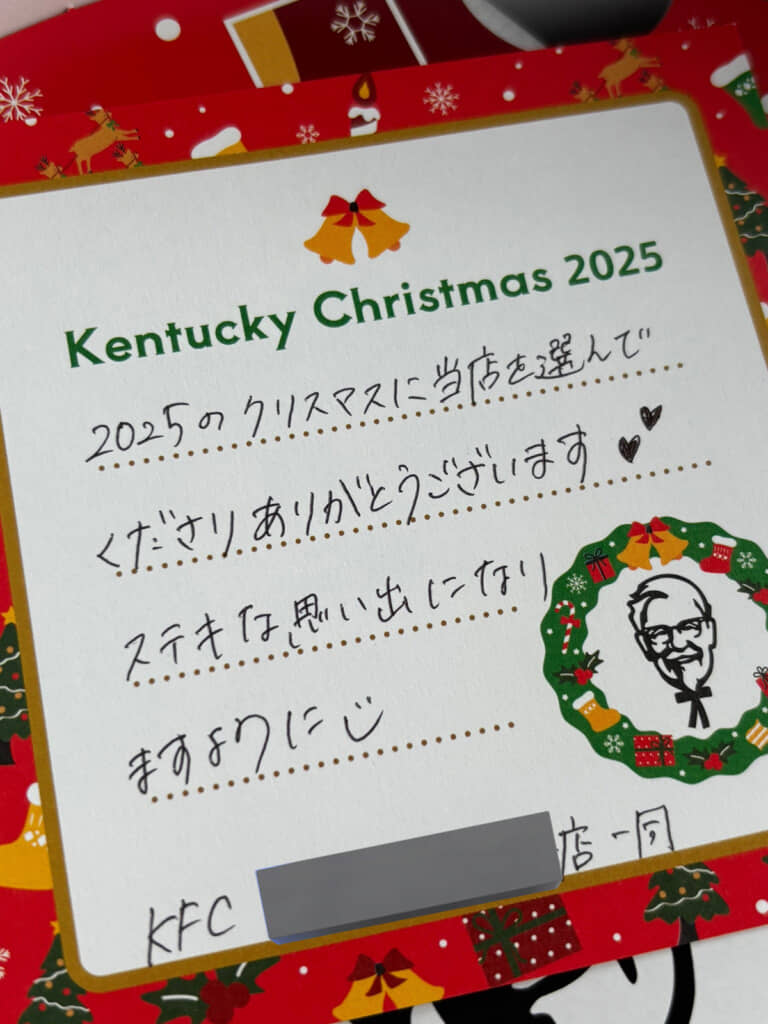 Kentucky Christmas 2025
2025のクリスマスに当店を選んで
くださりありがとうございます
ステキな思い出になり
ますように
KFC 店一同